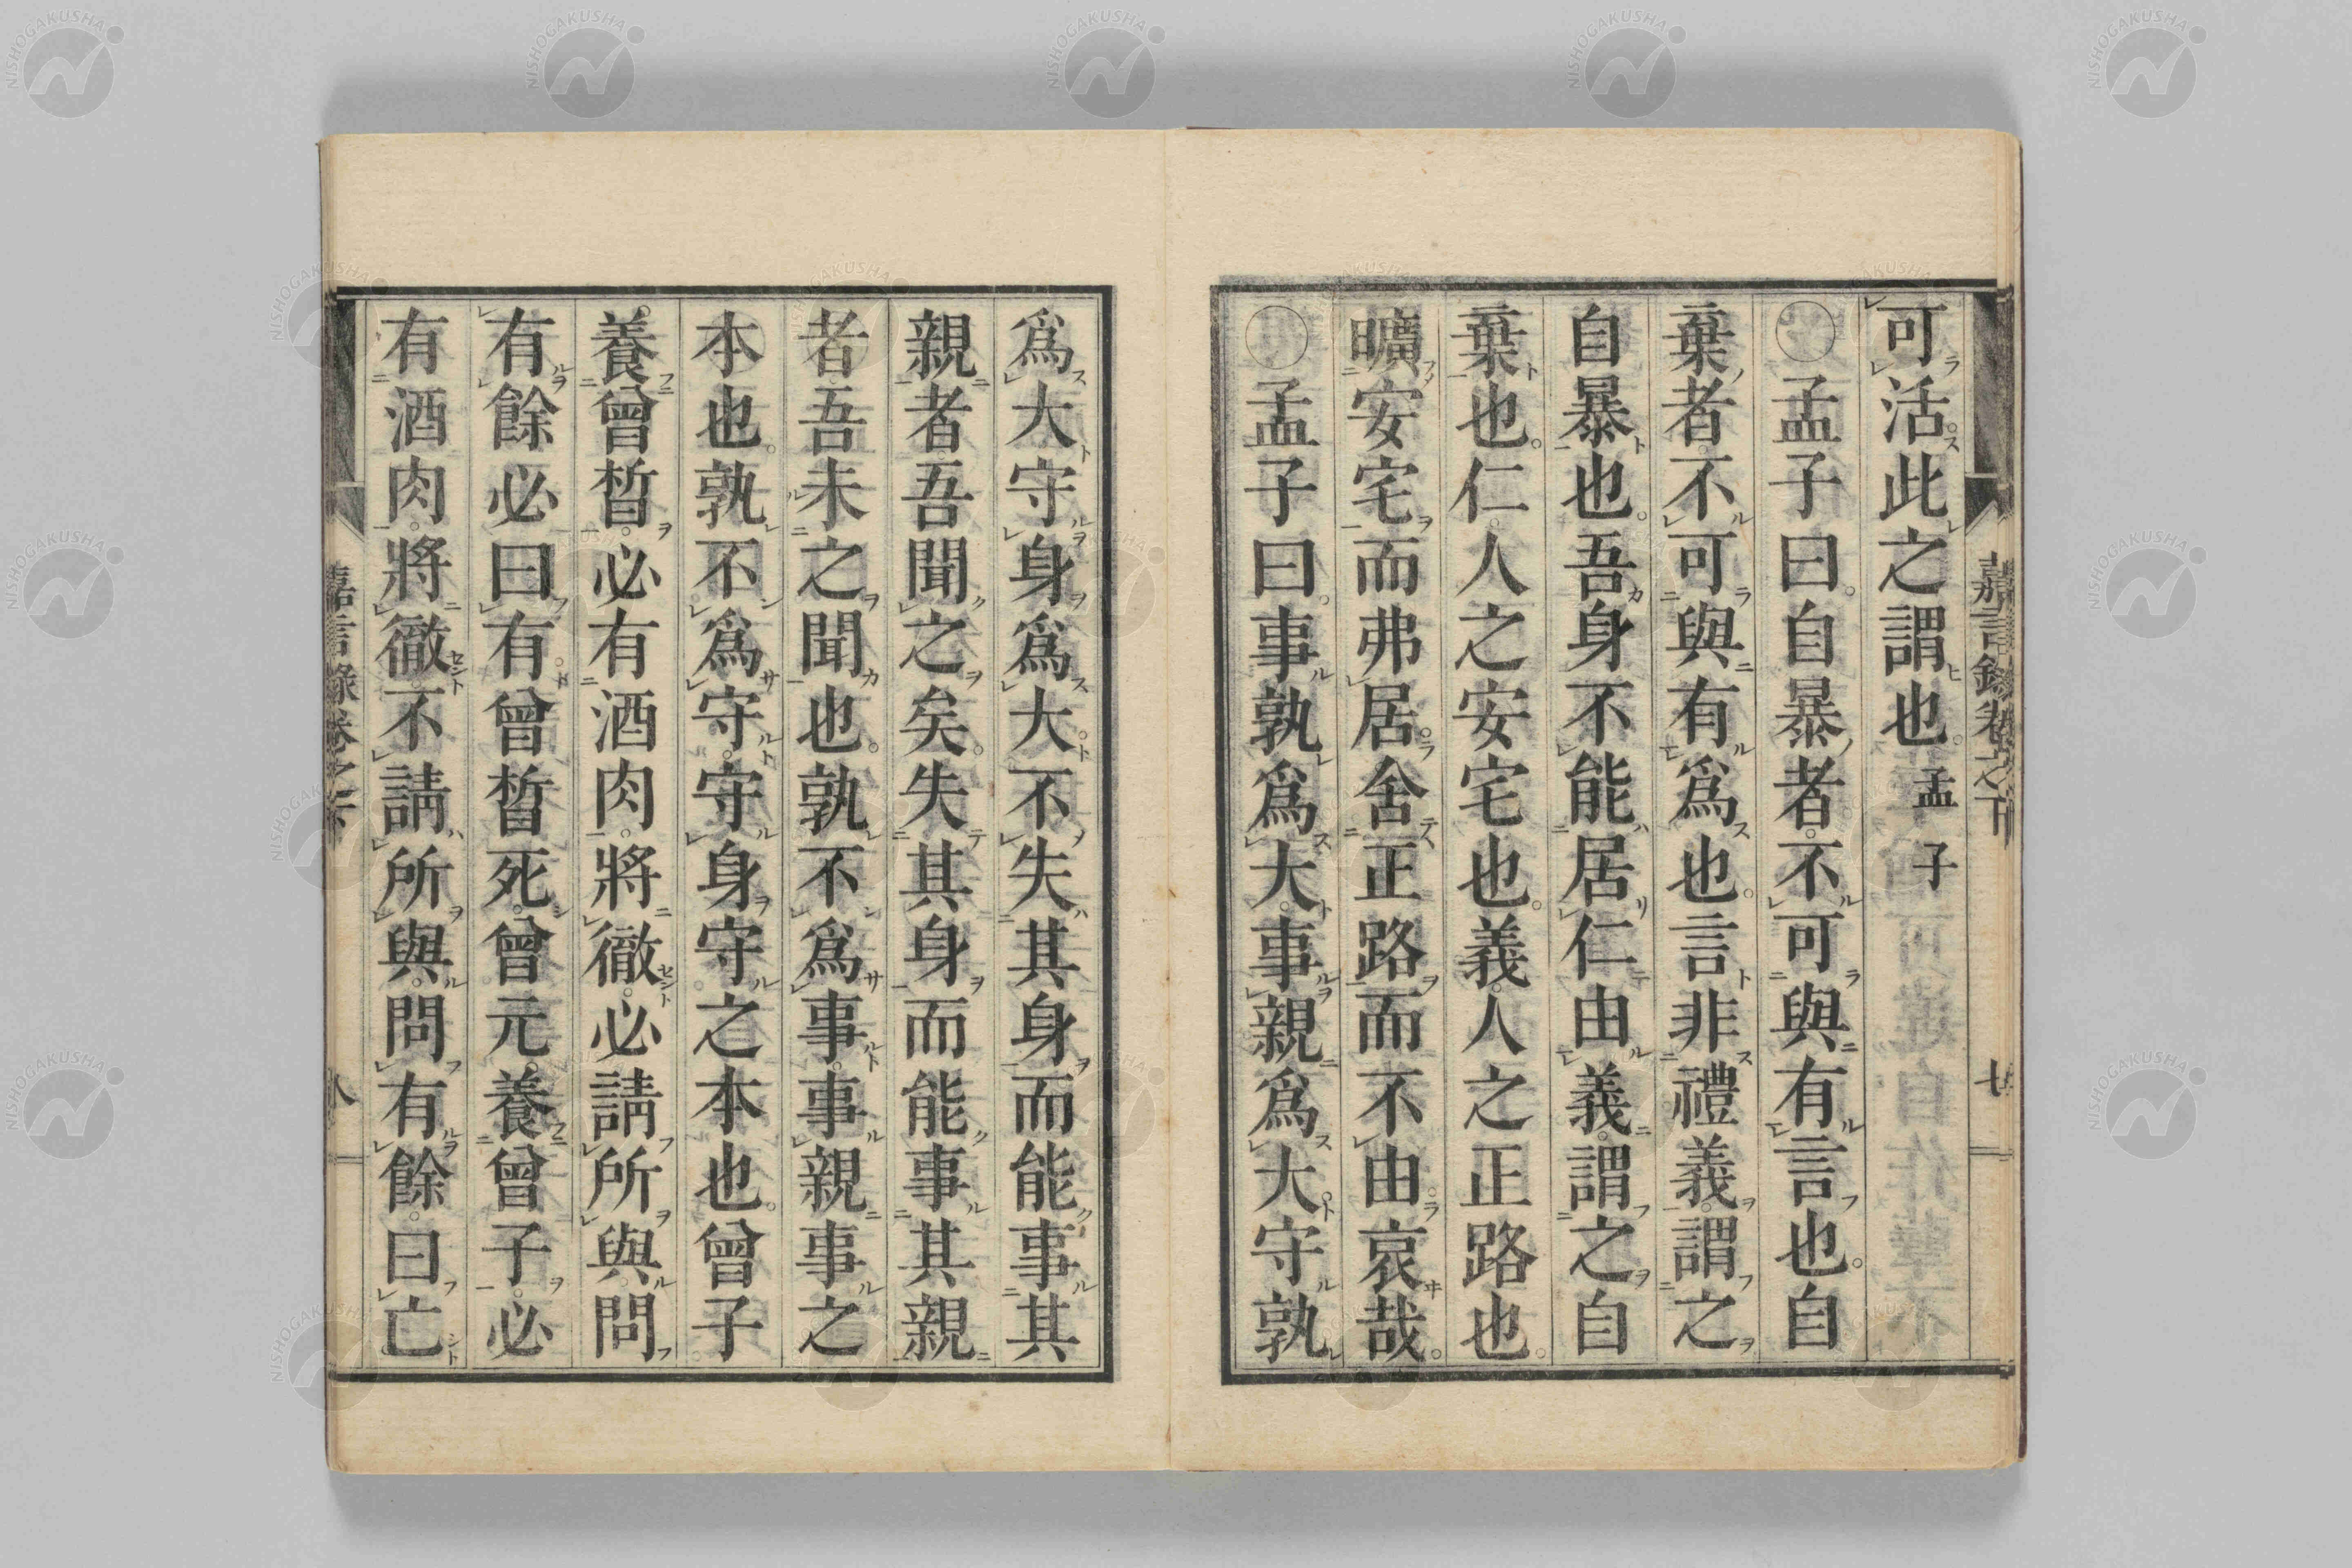 可活此之謂也。孟子
○孟子曰。自暴者。不可與有言也。自
棄者。不可與有爲也。言非禮義。謂之
自暴也。吾身不能居仁由義。謂之自
棄也。仁。人之安宅也。義。人之正路也。
曠安宅而弗居。舍正路而不由。哀哉。
○孟子曰。事孰爲大。事親爲大。守孰
爲大。守身爲大。不失其身而能事其
親者。吾聞之矣。失其身而能事其親
者。吾未之聞也。孰不爲事。事親事之
本也。孰不爲守。守身守之本也。曾子
養曾皙。必有酒肉。將徹。必請所與。問
有餘必曰有。曾皙死。曾元。養曾子。必
有酒肉。將徹。不請所與。問有餘。曰亡
嘉言錄卷之下
七
八
NISHOGAKUSHA